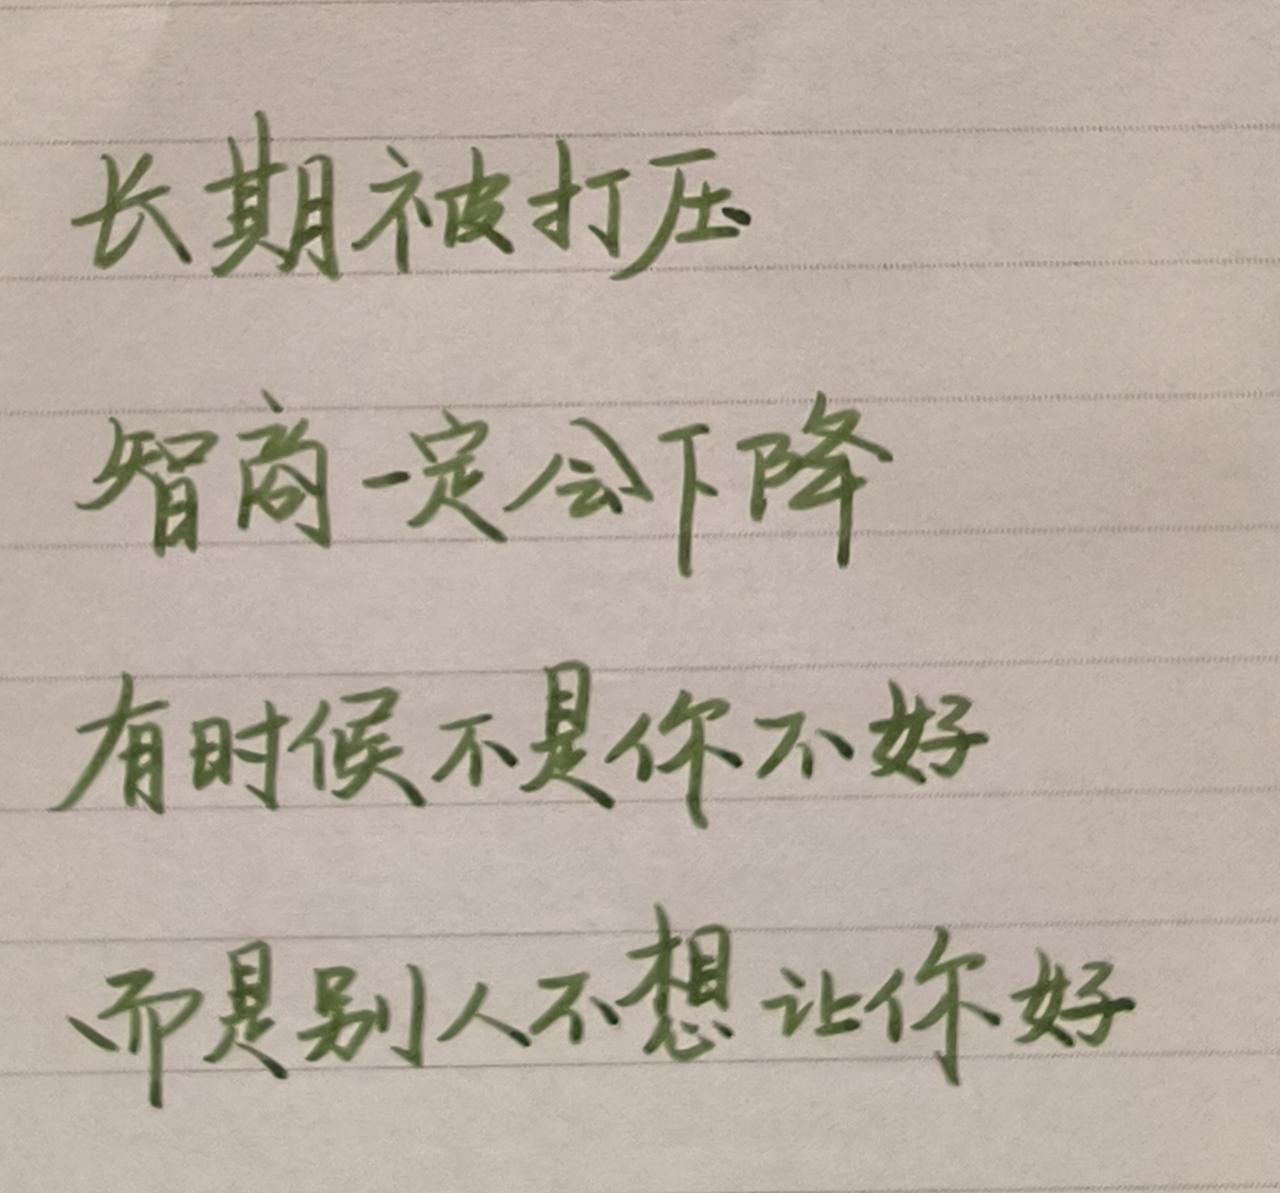 长期被打压
智商一定会下降
有时候不是你不好
而是别人不想让你好